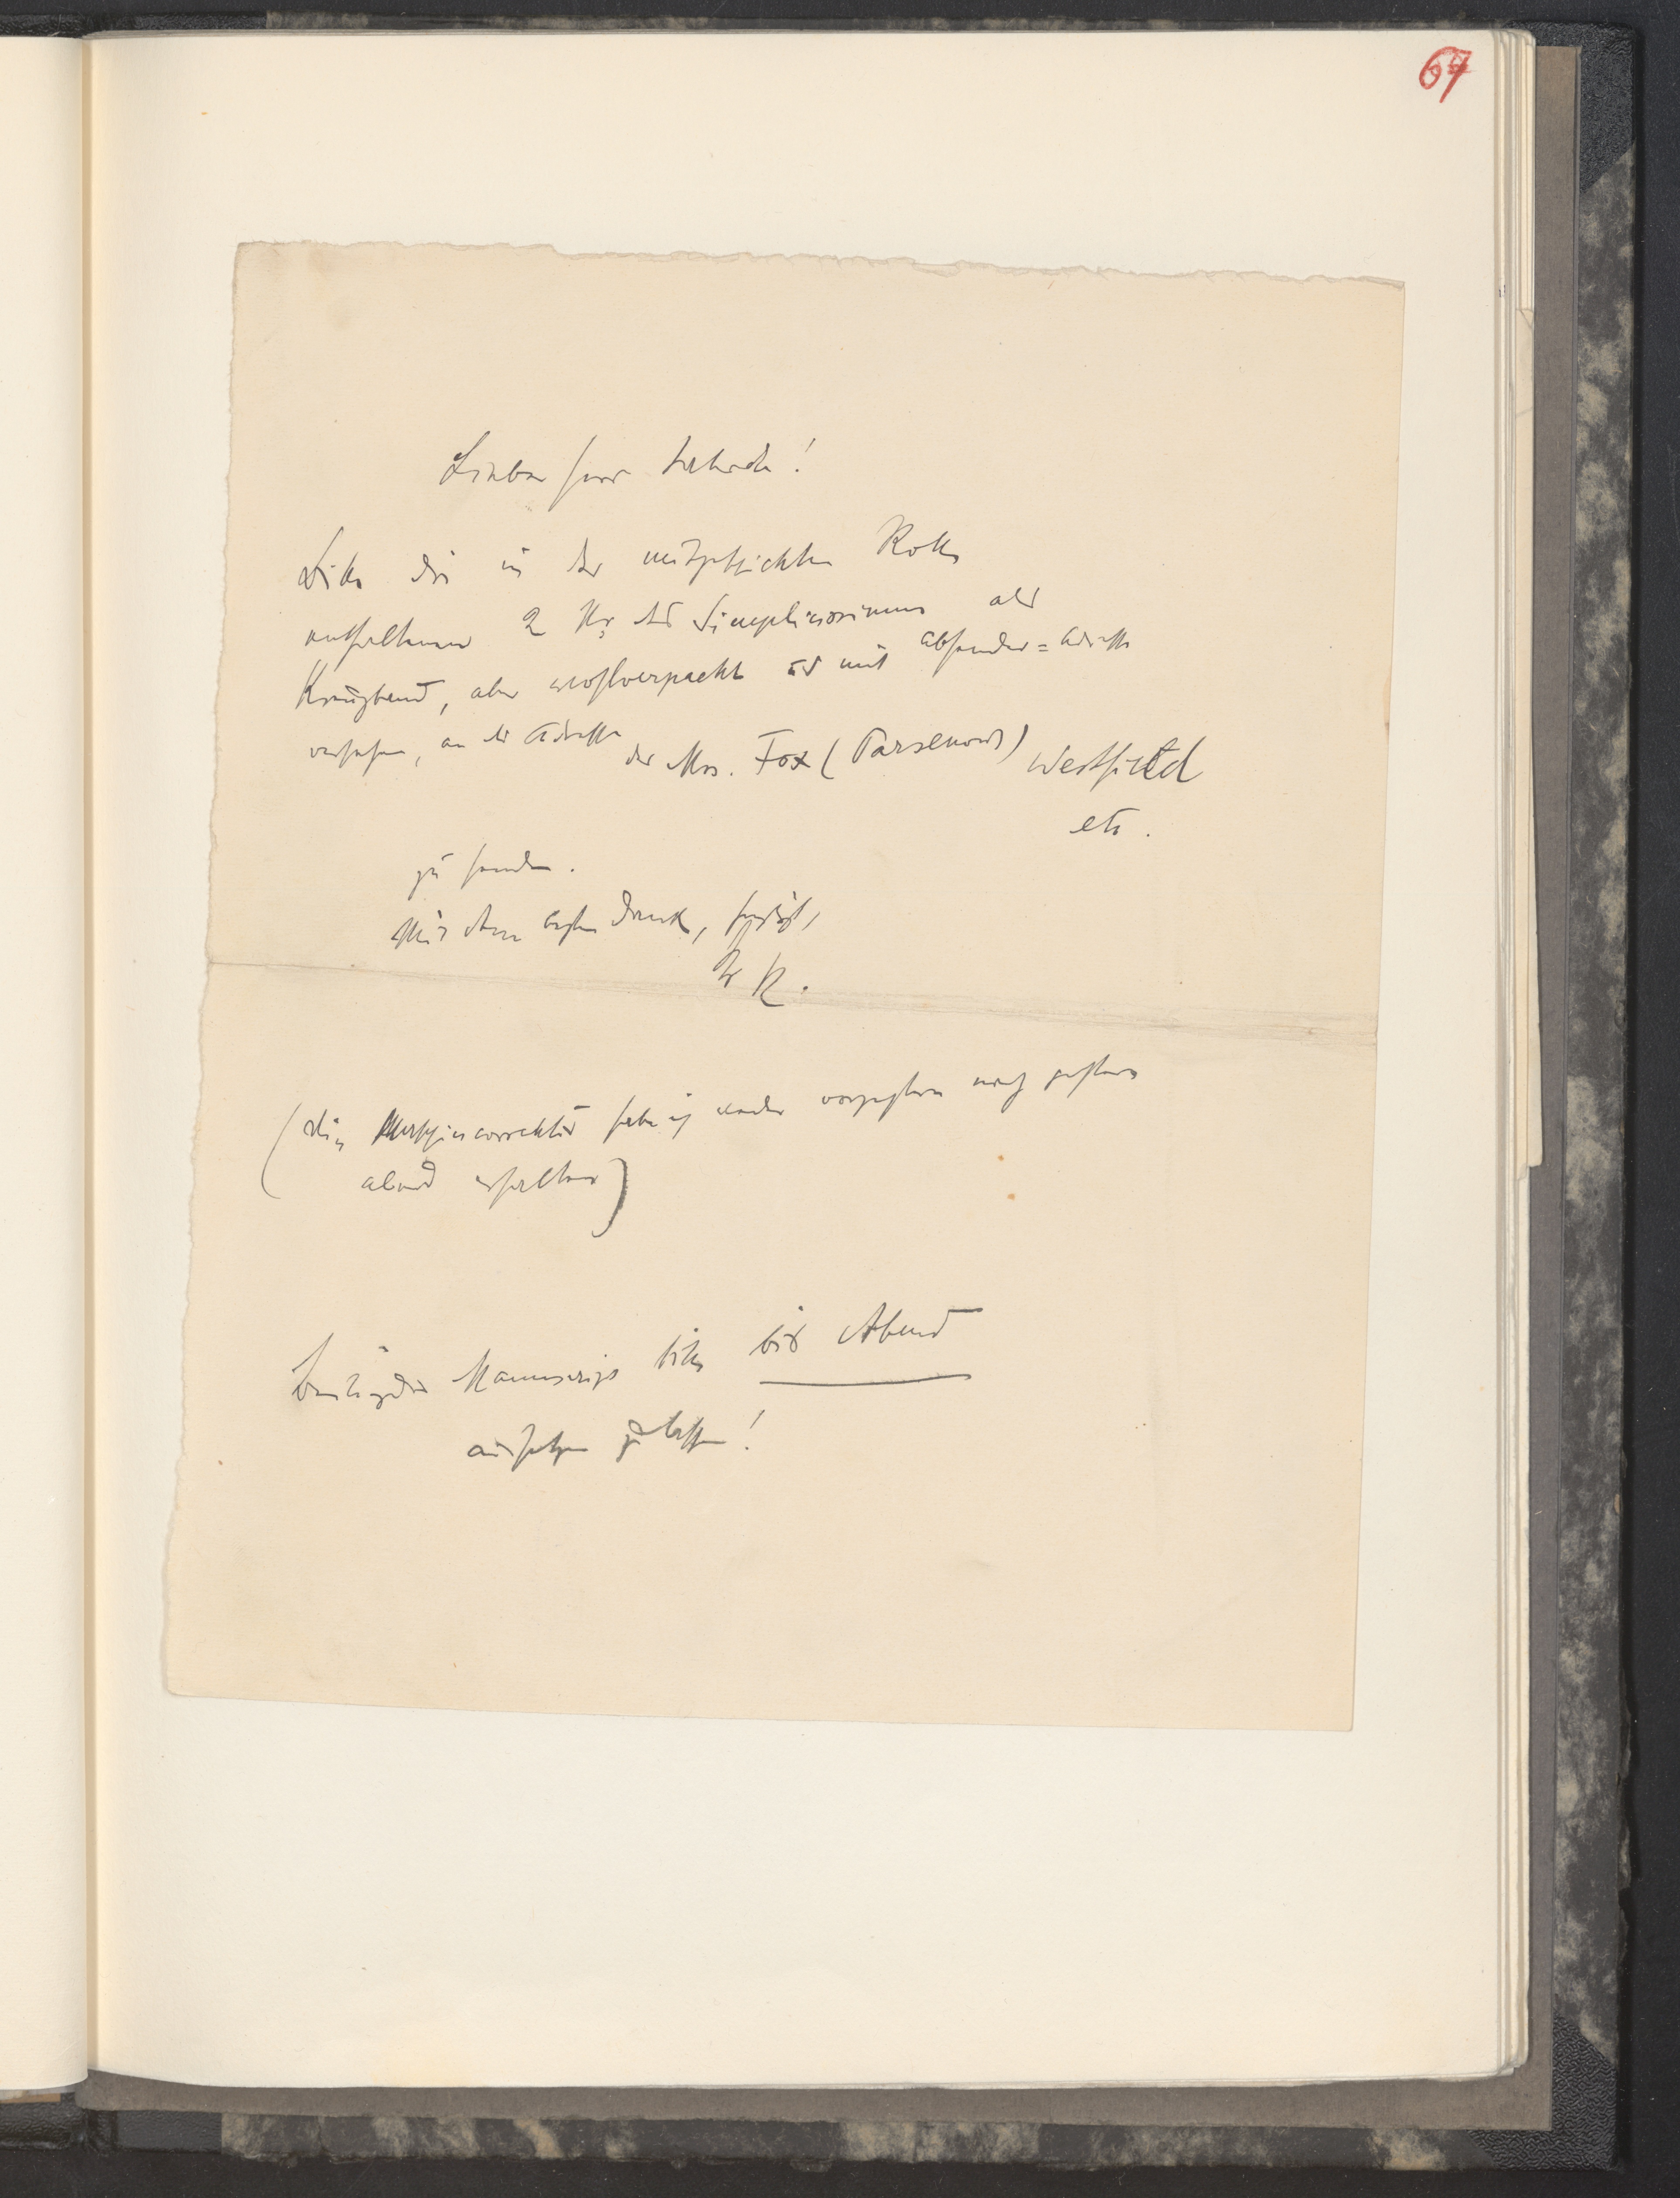 67
Lieber Herr Jahoda!
Bitte die in der mitgeschickten Rolle
enthaltenen 2 Nr des Simplicissimus als
Kreuzband, aber wohlverpackt u mit Absender=Adresse
versehen, an die Adresse der Mrs. Fox (Parsenow) Westfield
etc.
zu senden.
Mit dem besten Dank, herzlichst,
Ihr K.
(Die Maschinencorrectur habe ich weder vorgestern noch gestern
abend erhalten)
Beiliegendes Manuscript bitte bis Abend
aussetzen zu lassen!